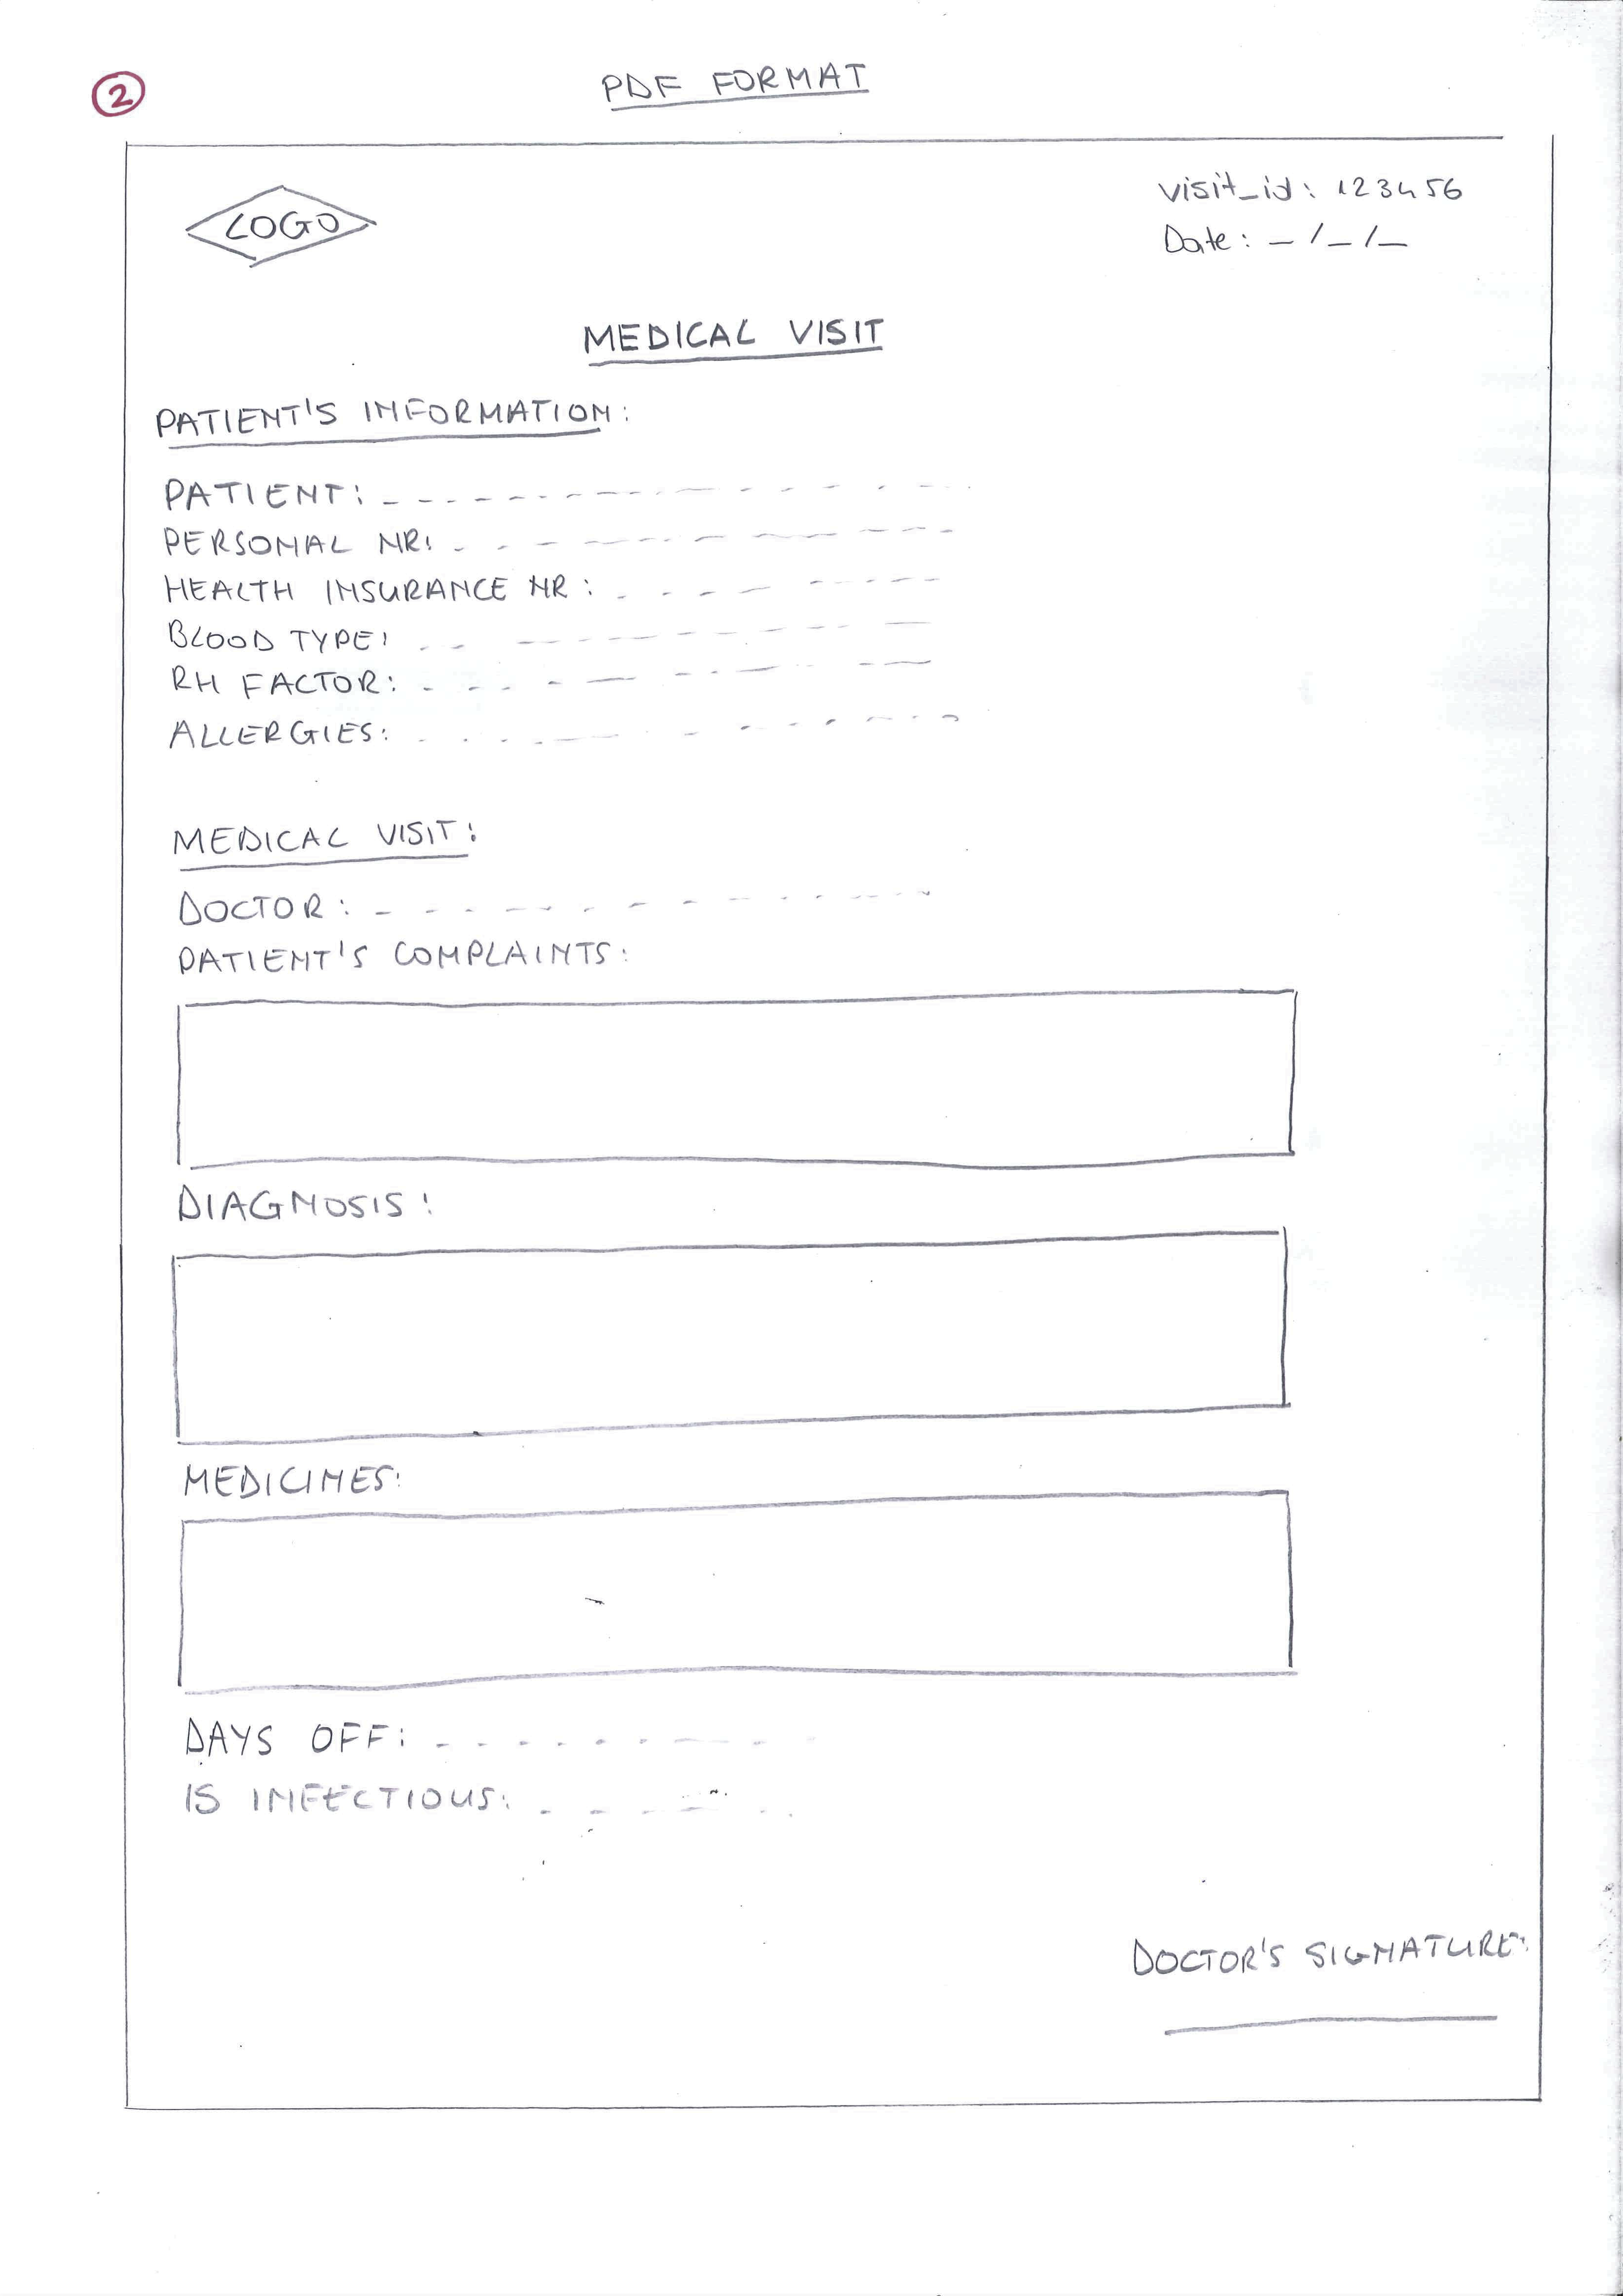 2
PDF FORMAT
LOGO
visit_id: 123456
Date: _/_/_
MEDICAL VISIT
PATIENT'S INFORMATION:
PATIENT:
PERSONAL NR:
HEALTH INSURANCE NR:
BLOOD TYPE:
RH FACTOR:
ALLERGIES:
MEDICAL VISIT:
DOCTOR:
PATIENT'S COMPLAINTS:
DIAGNOSIS:
MEDICINES:
DAYS OFF:
IS INFECTIOUS:
DOCTOR'S SIGNATURE: